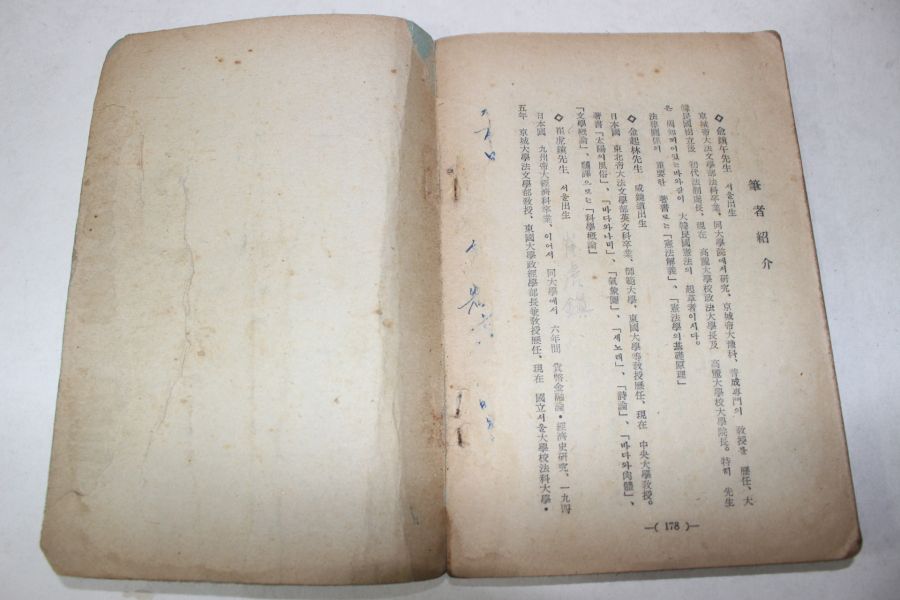 筆者紹介
◇ 兪鎭午先生 서울出生
京城帝大法文學部法科卒業、同大學院에서硏究、京城帝大豫科、普成專門의 敎授를 歷任、大
韓民國樹立後 初代法制處長、現在 高麗大學校政法大學長及 高麗大學校大學院長。特히 先生
은 周知되어있는바와같이 大韓民國憲法의 起草者이시다。
法律關係의 重要한 著書로는「憲法解義」、「憲法學의基礎原理」
◇ 金起林先生 咸鏡道出生
日本國 東北帝大法文學部英文科卒業、師範大學、東國大學等敎授歷任、現在 中央大學敎授。
著書「太陽의風俗」、「바다와나비」、「氣象圖」、「새노래」、「詩論」、「바다와肉體」、
「文學槪論」、飜譯으로는「科學槪論」
◇ 崔虎鎭先生 서울出生
日本國 九州帝大經濟科卒業、이어서 同大學에서 六年間 貨幣金融論・經濟史硏究、一九四
五年 京城大學法文學部敎授、東國大學政經學部長兼敎授歷任、現在 國立서울大學校法科大學・
—( 178 )—